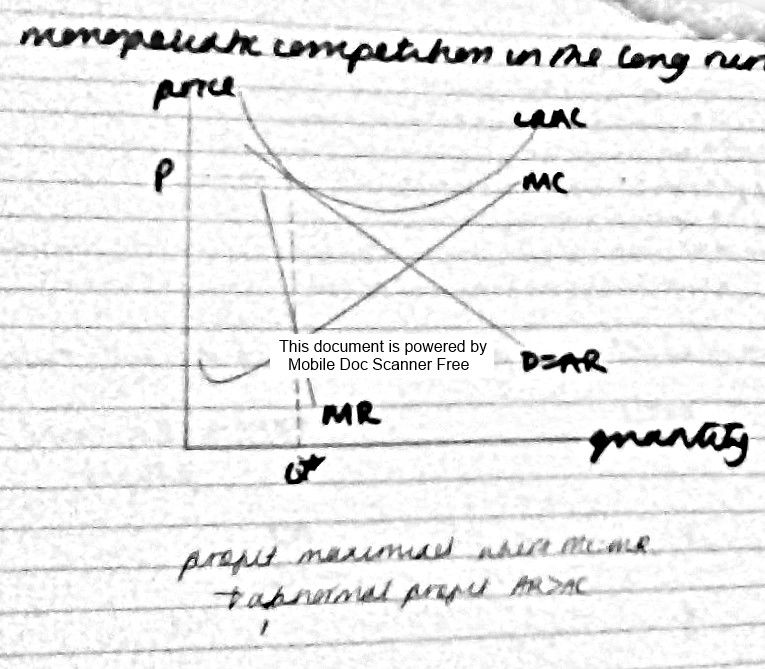 monopolistic competition in the long run
price
LRAC
P
MC
This document is powered by
Mobile Doc Scanner Free
D=AR
MR
quantity
Q*
profit maximised where MC=MR
→ abnormal profit AR>AC